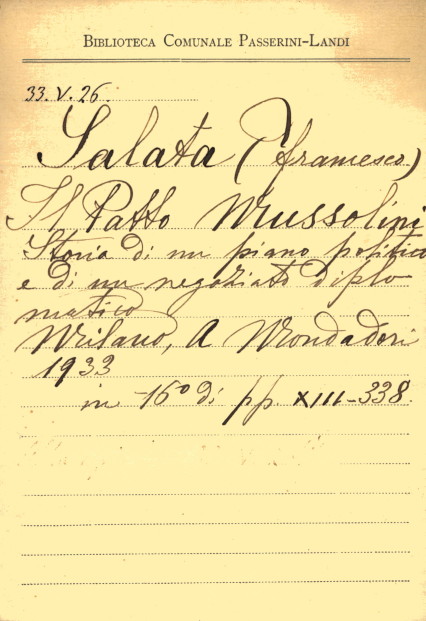 BIBLIOTECA COMUNALE PASSERINI-LANDI
33. V. 26.
Salata (Francesco)
Il Patto Mussolini
Storia di un piano politico
e di un negoziato diplo
matico
Milano, A Mondadori
1933
in 16º di pp. XIII-338.